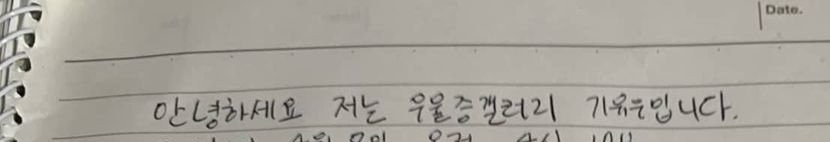 Date.
안녕하세요 저는 우울증갤러리 기유우입니다.